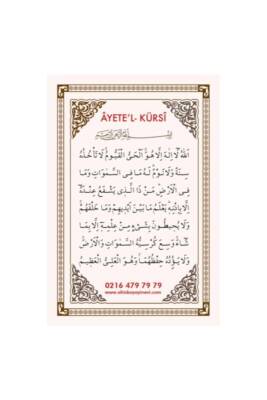 ÂYETE'L- KÜRSÎ
بِسْمِ اللّٰهِ الرَّحْمٰنِ الرَّحِيمِ
اَللّٰهُ لَٓا اِلٰهَ اِلَّا هُوَ اَلْحَيُّ الْقَيُّومُ لَا تَأْخُذُهُ
سِنَةٌ وَلَا نَوْمٌ لَهُ مَا فِى السَّمٰوَاتِ وَمَا
فِى الْاَرْضِ مَنْ ذَا الَّذِى يَشْفَعُ عِنْدَهُٓ
اِلَّا بِاِذْنِهِ يَعْلَمُ مَا بَيْنَ اَيْدِيهِمْ وَمَا خَلْفَهُمْ
وَلَا يُحِيطُونَ بِشَىْءٍ مِنْ عِلْمِهِٓ اِلَّا بِمَا
شَٓاءَ وَسِعَ كُرْسِيُّهُ السَّمٰوَاتِ وَالْاَرْضَ
وَلَا يَؤُدُهُ حِفْظُهُمَا وَهُوَ الْعَلِىُّ الْعَظِيمُ
0216 479 79 79